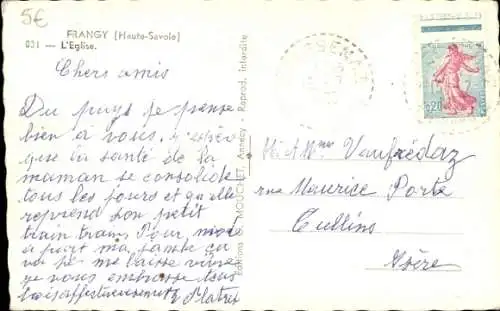 5€
FRANGY (Haute-Savoie)
031 — L'Eglise.
Chers amis
Du pays je pense
bien à vous, j'espère
que la santé de la
maman se consolide
tous les jours et qu'elle
reprend son petit
train train. Pour moi
à part ma jambe où
vous embrasse tous
affectueusement
Editions G. MOUCHET, Annecy Reprod. interdite
Mr et Mme Vaufrédaz
rue Maurice Porte
Tullins
Isère
0,20